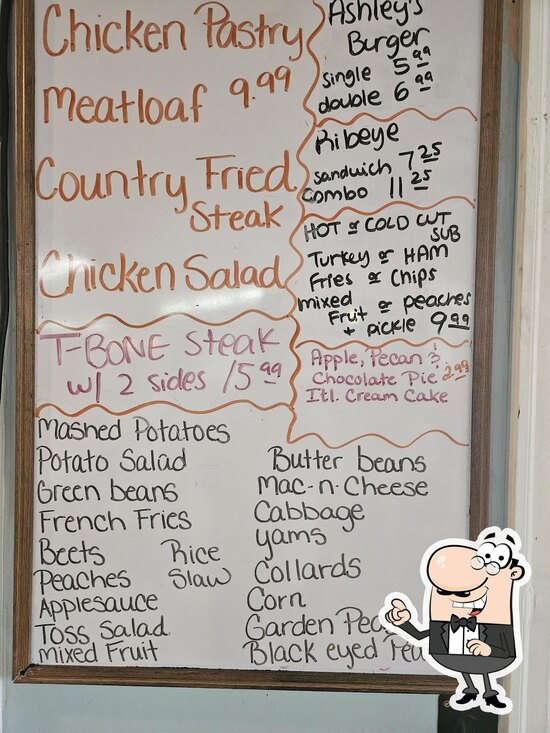 Chicken Pastry
Meatloaf 9.99
Country Fried
Steak
Chicken Salad
T-BONE Steak
w/ 2 sides 15 99
Ashley's
Burger
single 5 99
double 6 99
Ribeye
sandwich 7 25
Combo 11 25
HOT or COLD CUT
SUB
Turkey or HAM
fries or Chips
mixed
Fruit or peaches
+ pickle 9 99
Apple, Pecan &
Chocolate Pie 2.99
Itl. Cream Cake
Mashed Potatoes
Potato Salad
Green beans
French Fries
Beets Rice
Peaches Slaw
Applesauce
Toss Salad
mixed Fruit
Butter beans
Mac-n-Cheese
Cabbage
yams
Collards
Corn
Garden
Black eyed